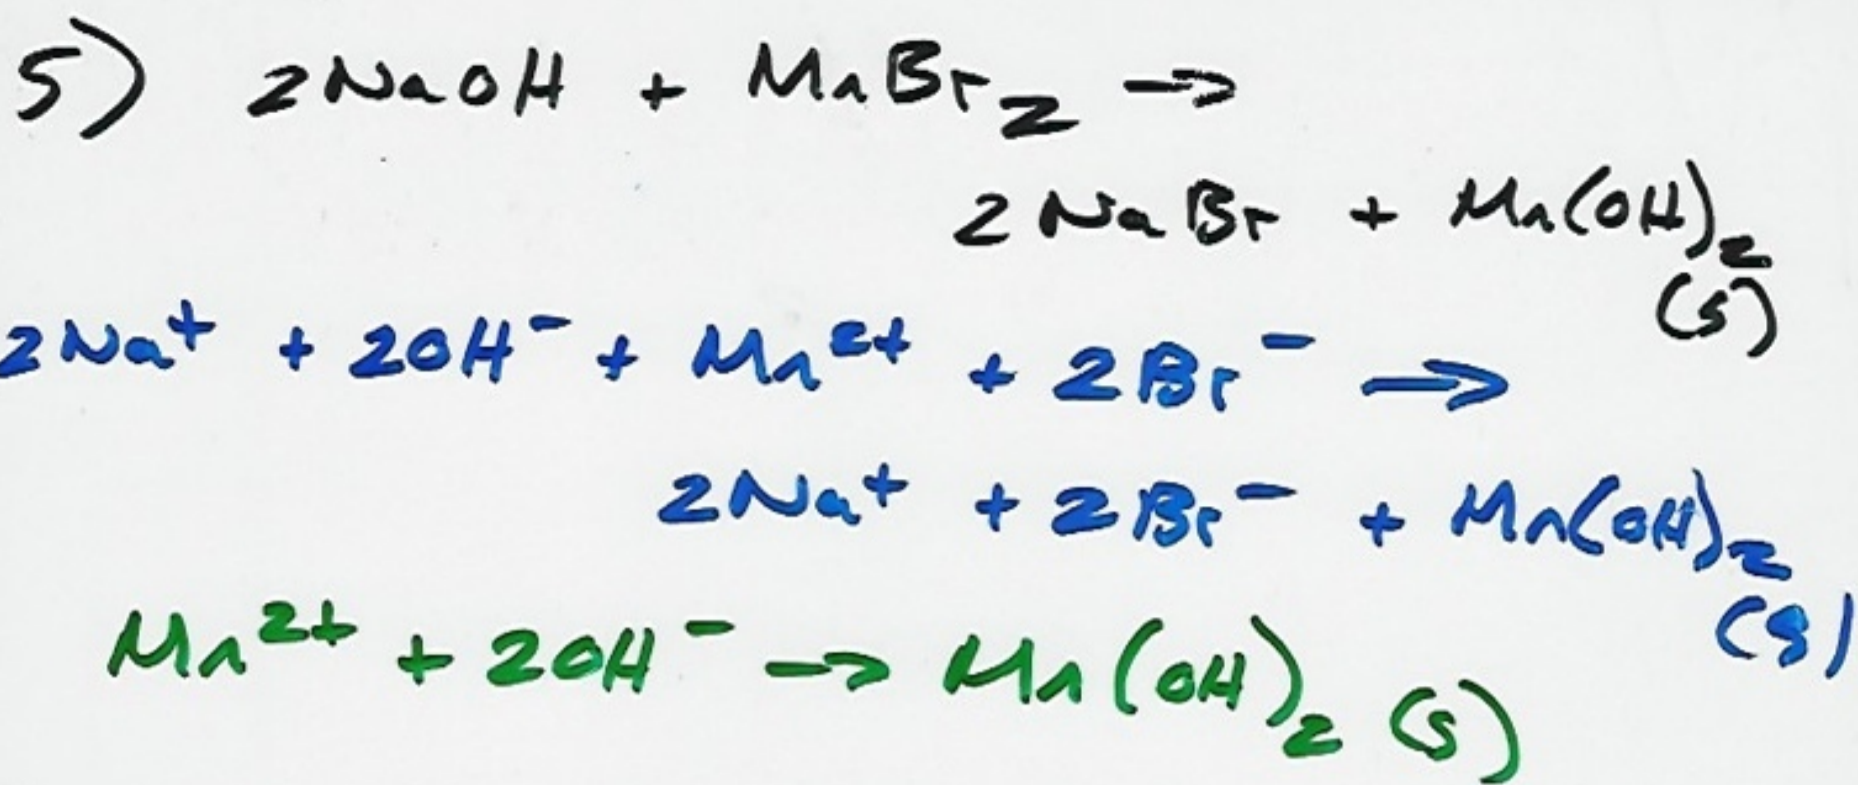 5) 2NaOH + MnBr₂ →
2NaBr + Mn(OH)₂
(s)
2Na⁺ + 2OH⁻ + Mn²⁺ + 2Br⁻ →
2Na⁺ + 2Br⁻ + Mn(OH)₂
(s)
Mn²⁺ + 2OH⁻ → Mn(OH)₂ (s)